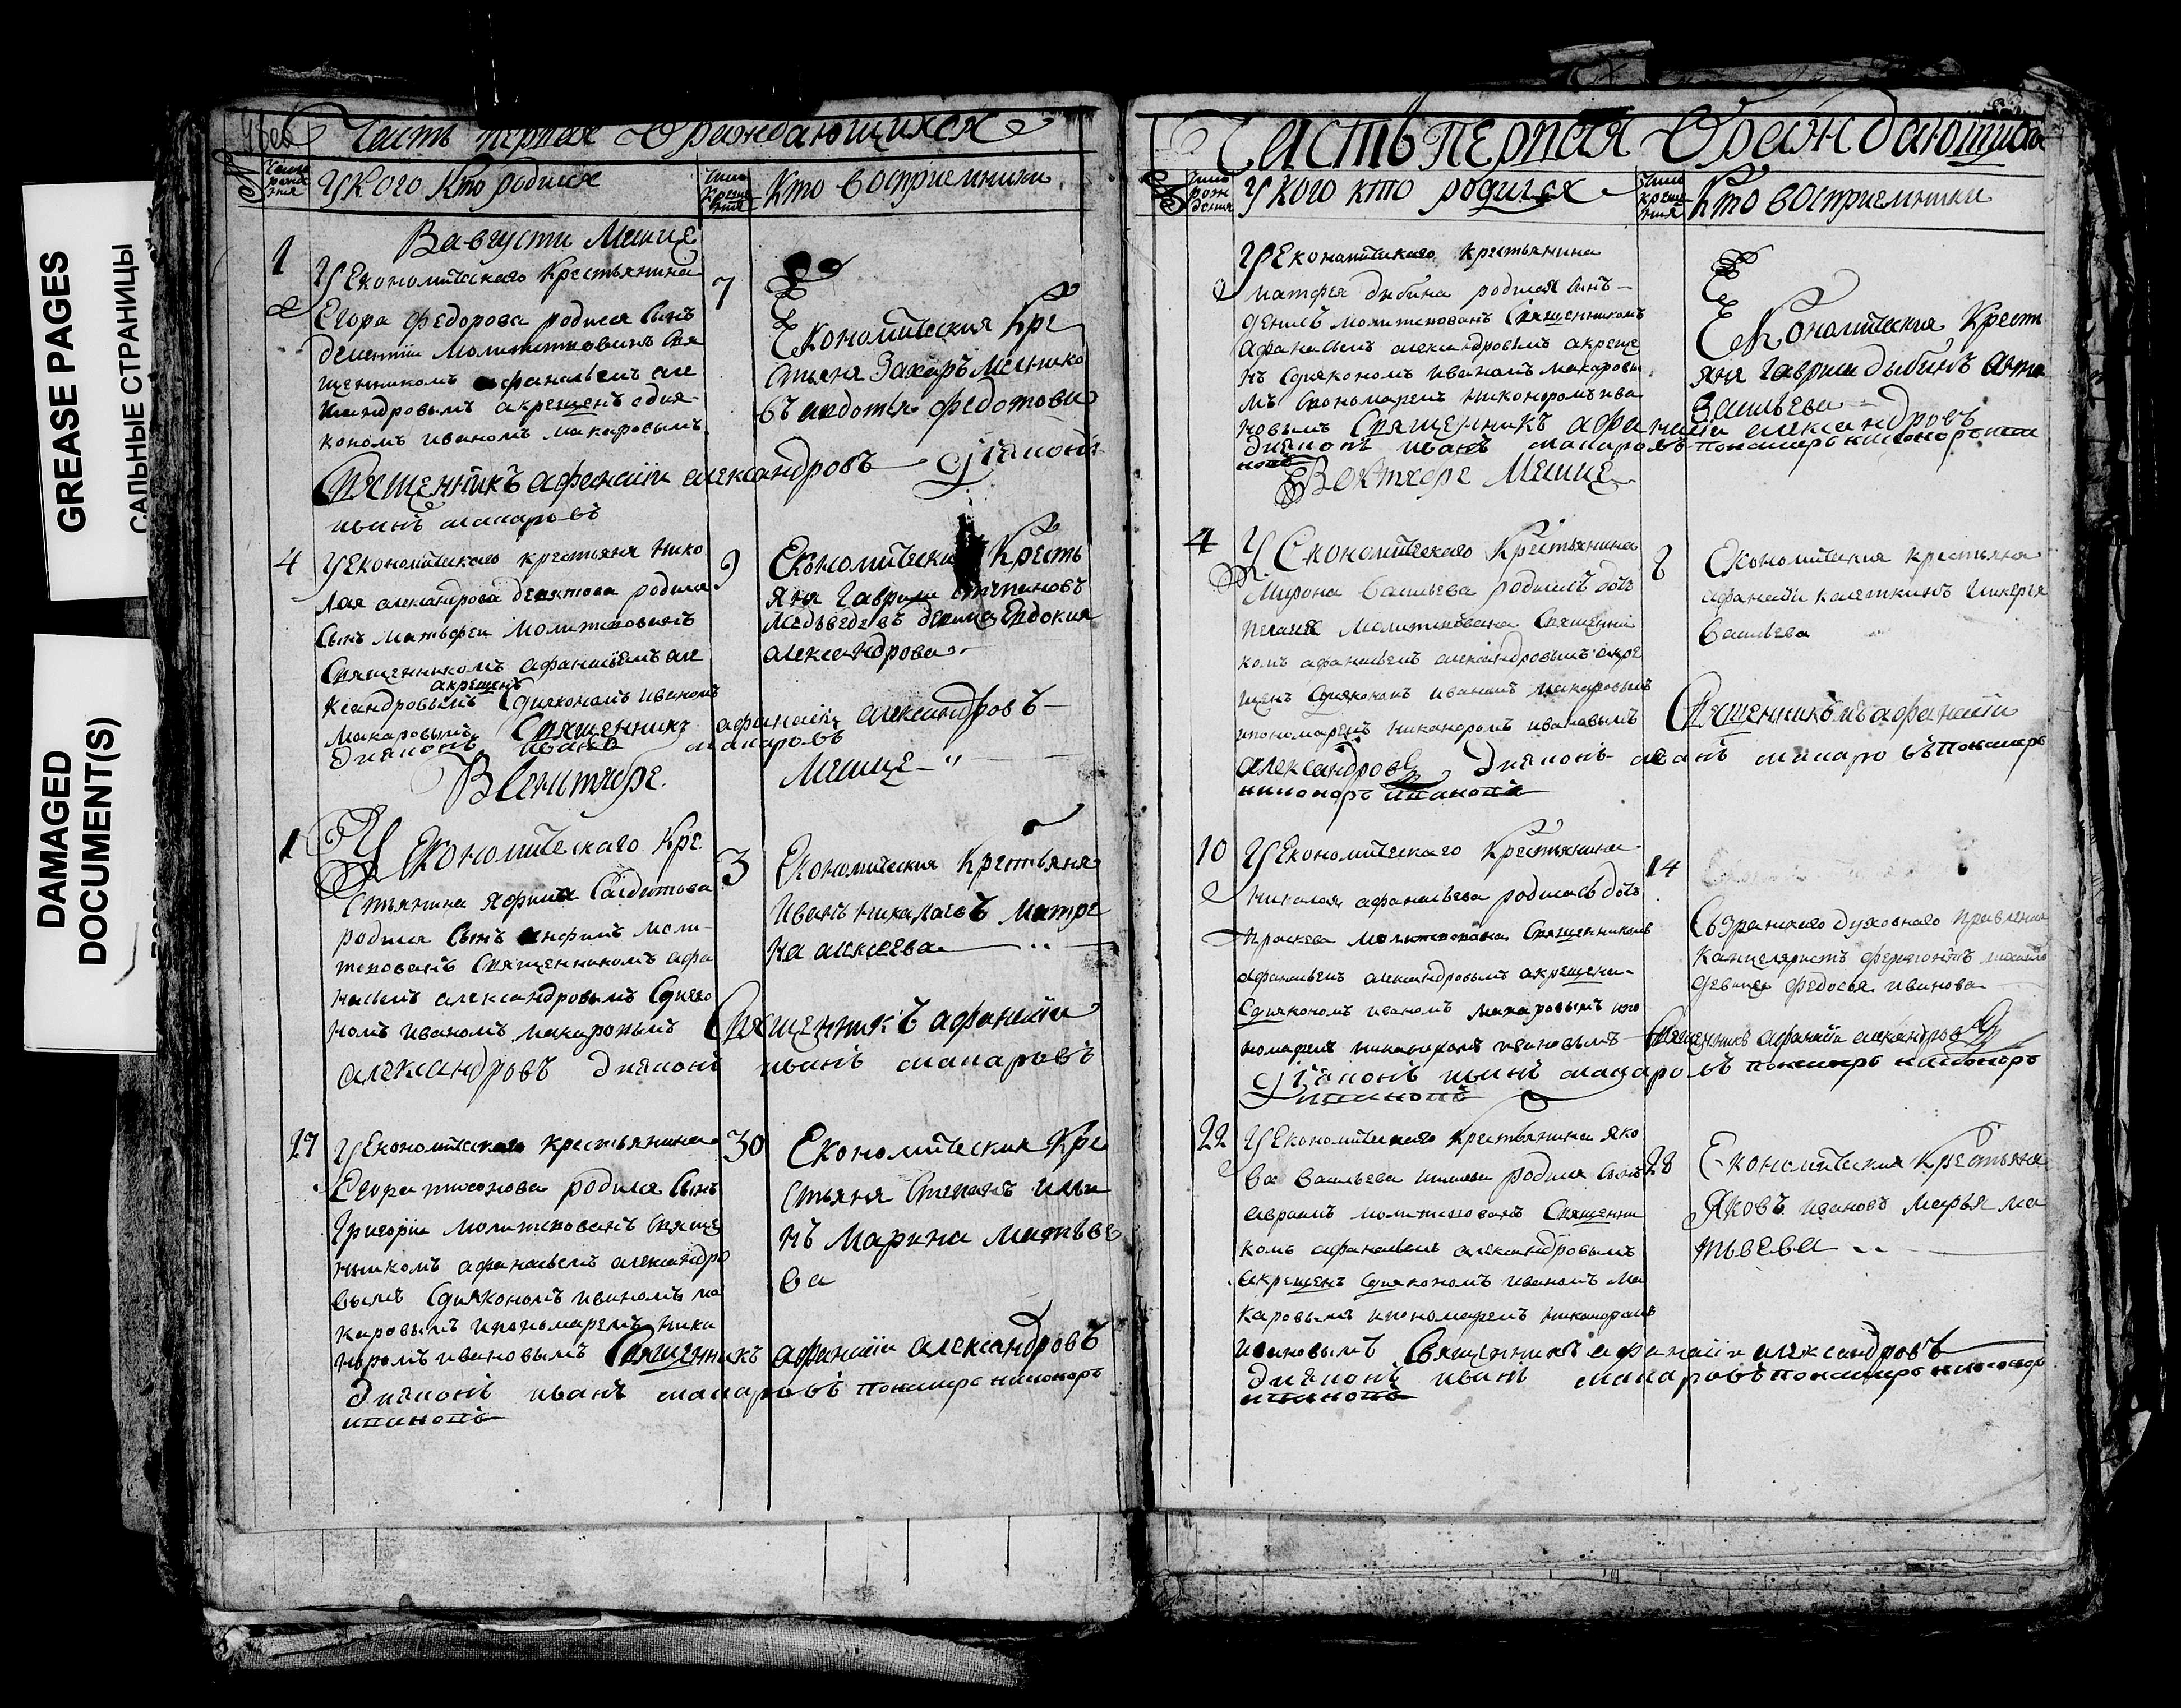 GREASE PAGES
САЛЬНЫЕ СТРАНИЦЫ
DAMAGED
DOCUMENT(S)
Часть первая О раждающихся
№
Число рожде ния
У кого Кто родился
Число Креще ния
Кто восприемники
В августи Месяце
1
У Економическаго Крестьянина
7
Егора федорова родился Сынъ
дементии Молитвованъ Свя
щенникомъ афанасьемъ але
ксандровымъ акрещенъ здия
кономъ иваномъ макаровымъ
Економическия Кре
стьяня Захаръ Мелнико
въ авдотья федотова
Священникъ афанасии александровъ Диаконъ
иванъ макаровъ
4
У Економическаго крестьяня Нико
9
лая александрова девятова родился
Сынъ матьфеи Молитвованъ
Священникомъ афанасьемъ але
акрещенъ
Ксандровымъ Сдияконамъ иваномъ
макаровымъ
Економически Кресть
яня Гаврила степановъ
Медьведевъ девица Евдокия
александрова
Священникъ афанасии александровъ
Дияконъ иванъ макаровъ
В Сентябре Месице
1
У Економическаго Кре
3
стьянина
родился Сынъ анфимъ моли
твованъ Священникомъ афа
насьемъ александровымъ Сдияко
номъ иваномъ макаровымъ
Економическия Крестьяня
Иванъ николаевъ Матре
на алксеева
Священникъ афанасии
александровъ дияконъ иванъ макаровъ
27
У Економическаго крестьянина
30
Егора тихонова родился Сынъ
Григории молитвованъ Свяще
нникомъ афанасьемъ александро
вымъ Сдиякономъ иваномъ ма
каровымъ ипономаремъ Ника
норомъ ивановымъ
Економическия Кре
стьяня Степанъ ильи
нъ Марина Матьве
ва
Священникъ афанасии александровъ
Дияконъ иванъ макаровъ пономарь никоноръ
ивановъ
Часть первая О раждающихся
№
Число рож дения
У кого кто родился
Число креще ния
Кто восприемники
У Економическаго Крестьянина
матфея дыбина родился Сынъ
денисъ молитвованъ Священникомъ
афанасьемъ александровымъ акреще
нъ Сдиякономъ иваномъ макаровы
мъ Спономаремъ никоноромъ ива
новымъ
Економическия Крестя
яня Гаврила дыбинъ
Васильева
Священникъ афанасии александровъ
дияконъ иванъ макаровъ пономарь никоноръ ива
новъ
В Октябре Месице
4
У Економическаго Крестьянина
8
Мирона Васильева родилась дочь
пелагея молитвована Священни
комъ афанасьемъ александровымъ акре
щенъ Сдиякономъ иваномъ макаровымъ
ипономаремъ никанором ивановымъ
Економическия крестьяня
афанасии калеткинъ Гликерья
Васильева
Священникъ афанасии
александровъ Дияконъ иванъ макаровъ пономарь
никоноръ ивановъ
10
У Економическаго Крестьянина
14
Николая афанасьева родилась дочь
праскева молитвована Священникомъ
афанасьемъ александровымъ акрещена
Сдиякономъ иваномъ макаровымъ ипо
номаремъ никаноромъ ивановымъ
Сызранскаго духовнаго правления
Канцеляристъ
девица федосья иванова
Священникъ афанасии александровъ
Дияконъ иванъ макаровъ пономарь никоноръ
ивановъ
22
У Економическаго крестьянина яко
28
ва Васильева родился Сынъ
авраамъ молитвованъ Священни
комъ афанасьемъ александровымъ
акрещенъ Сдиякономъ иваномъ ма
каровымъ ипономаремъ никаноромъ
ивановымъ
Економическия Крестьяня
Яковъ ивановъ Марья ма
тьвева
Священникъ афанасии александровъ
Дияконъ иванъ макаровъ пономарь никоноръ
ивановъ